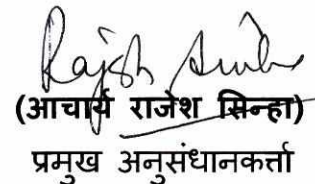 Rajesh Sinha
(आचार्य राजेश सिन्हा)
प्रमुख अनुसंधानकर्त्ता